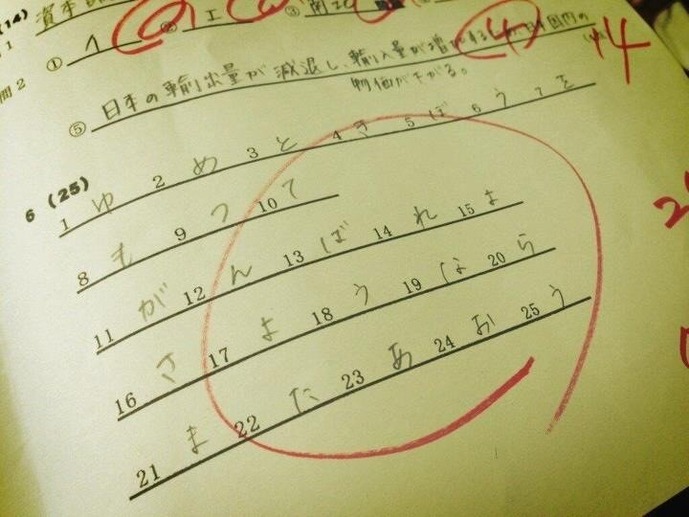 (14) 資本
① イ ② エ ③
問2
⑤ 日本の輸出量が減退し、輸入量が増
物価が下がる。
4
6 (25)
1 ゆ 2 め 3 と 4 き 5 ぼ 6 う 7 を
8 も 9 つ 10 て
11 が 12 ん 13 ば 14 れ 15 よ
16 さ 17 よ 18 う 19 な 20 ら
21 ま 22 た 23 あ 24 お 25 う